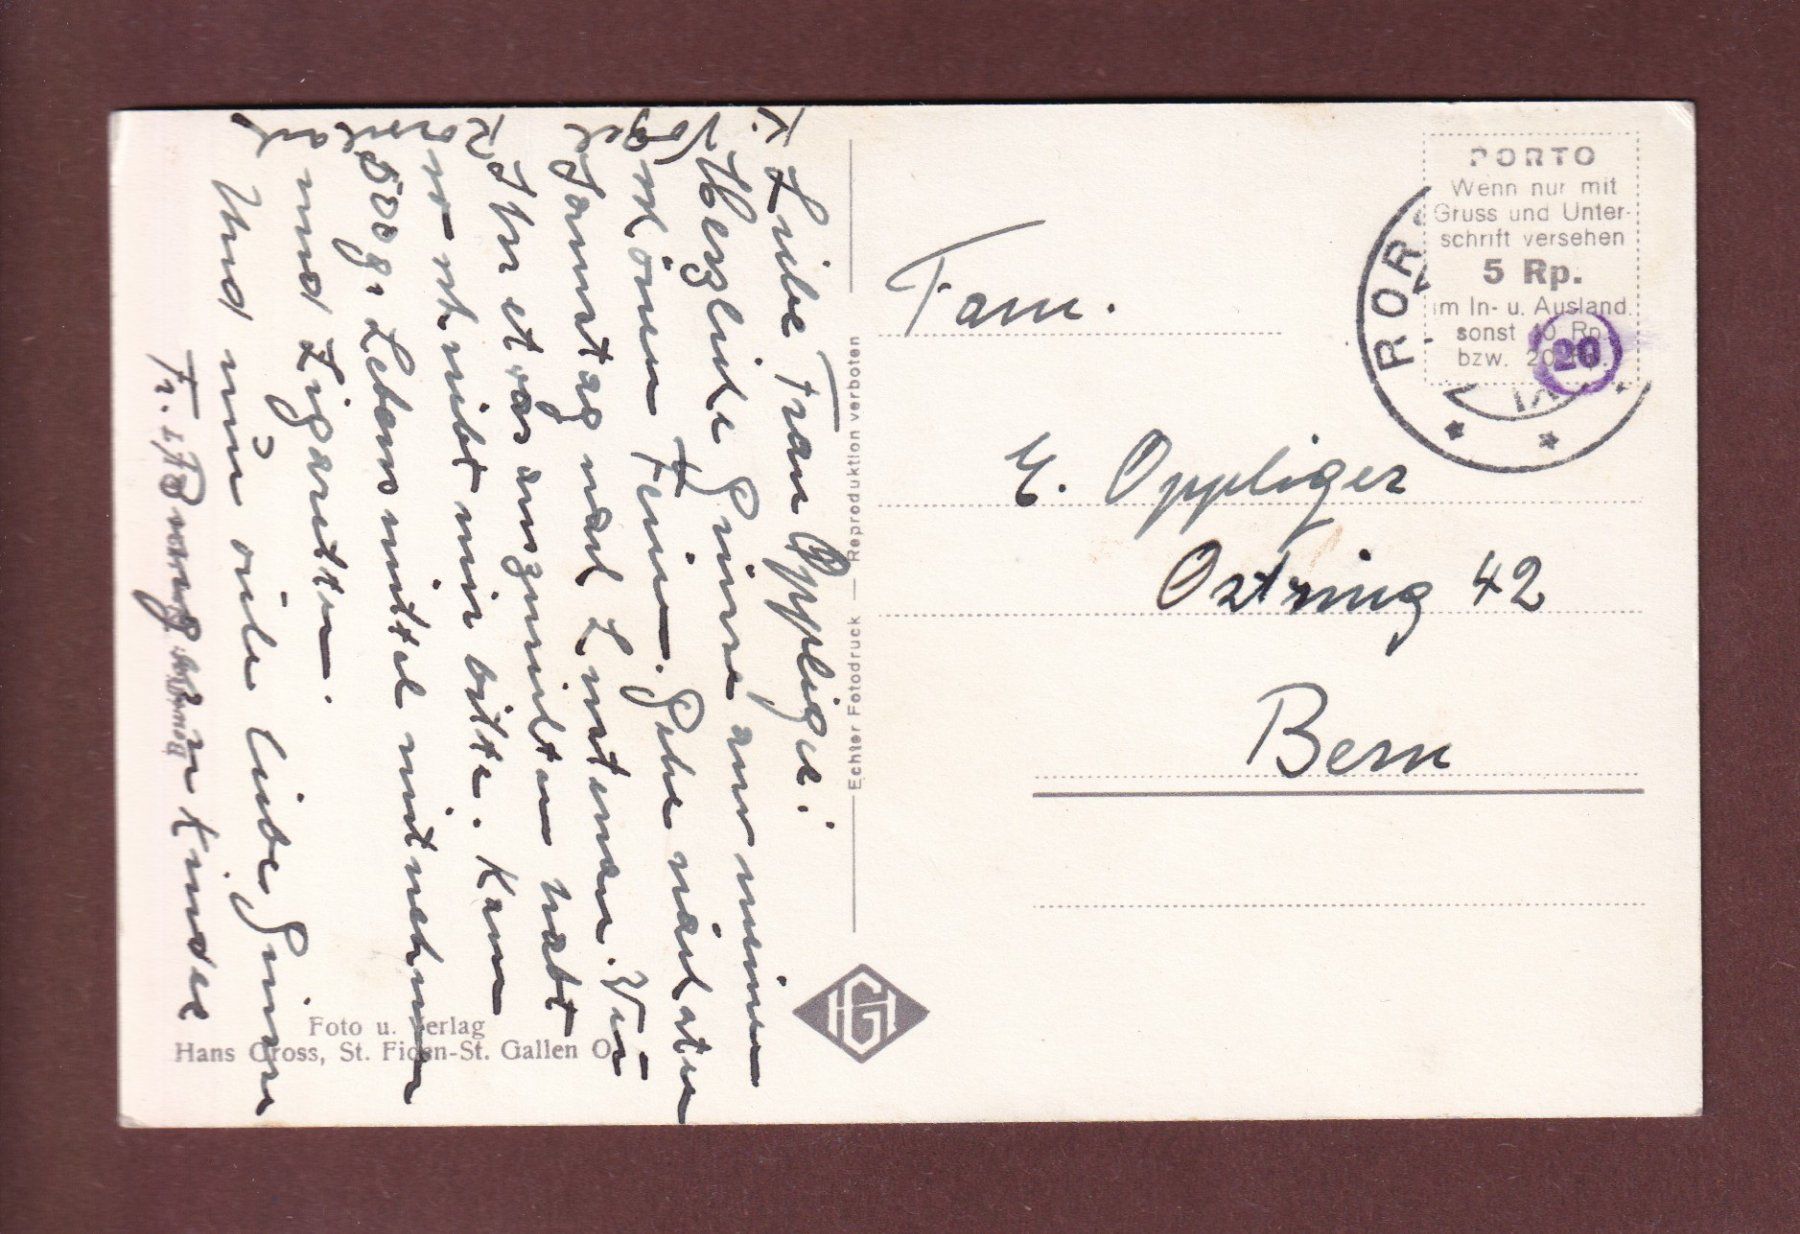 Liebe Frau Oppliger!
Herzliche Grüsse aus meinen
schönen Ferien. Gehe nächsten
Sonntag nach Lustenau. Wenn
Ihr etwas auszurichten habt
so schreibt mir bitte. Kann
500 g. Lebensmittel mitnehmen
und Zigaretten.
Und nun viele liebe Grüsse
Kinder
K. Vogel
Rorschach
Echter Fotodruck — Reproduktion verboten
Foto u. Verlag
Hans Gross, St. Fiden-St. Gallen O
HG
PORTO
Wenn nur mit
Gruss und Unter-
schrift versehen
5 Rp.
im In- u. Ausland.
sonst 10 Rp.
bzw. 20
20
ROR
Fam.
E. Oppliger
Ostring 42
Bern